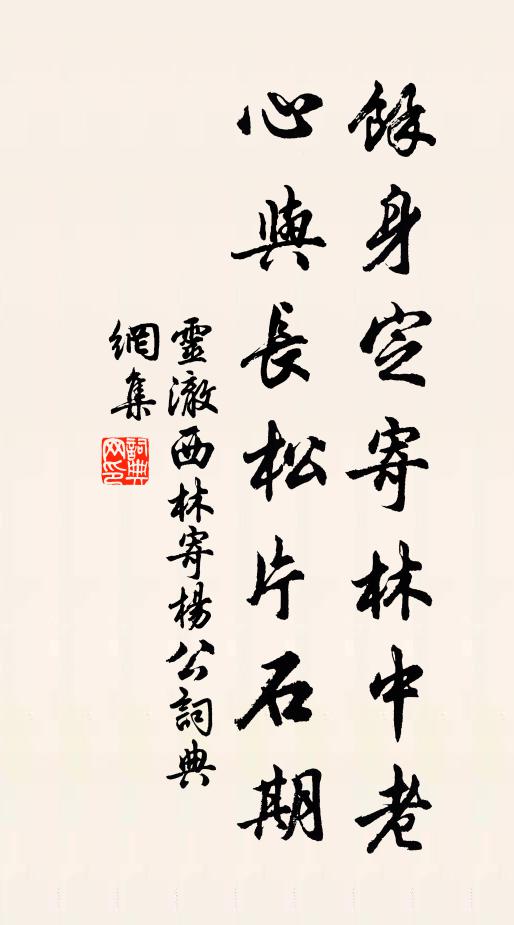 餘身定寄林中老
心與長松片石期
靈澈西林寄楊公詞典
網集
詞典网印